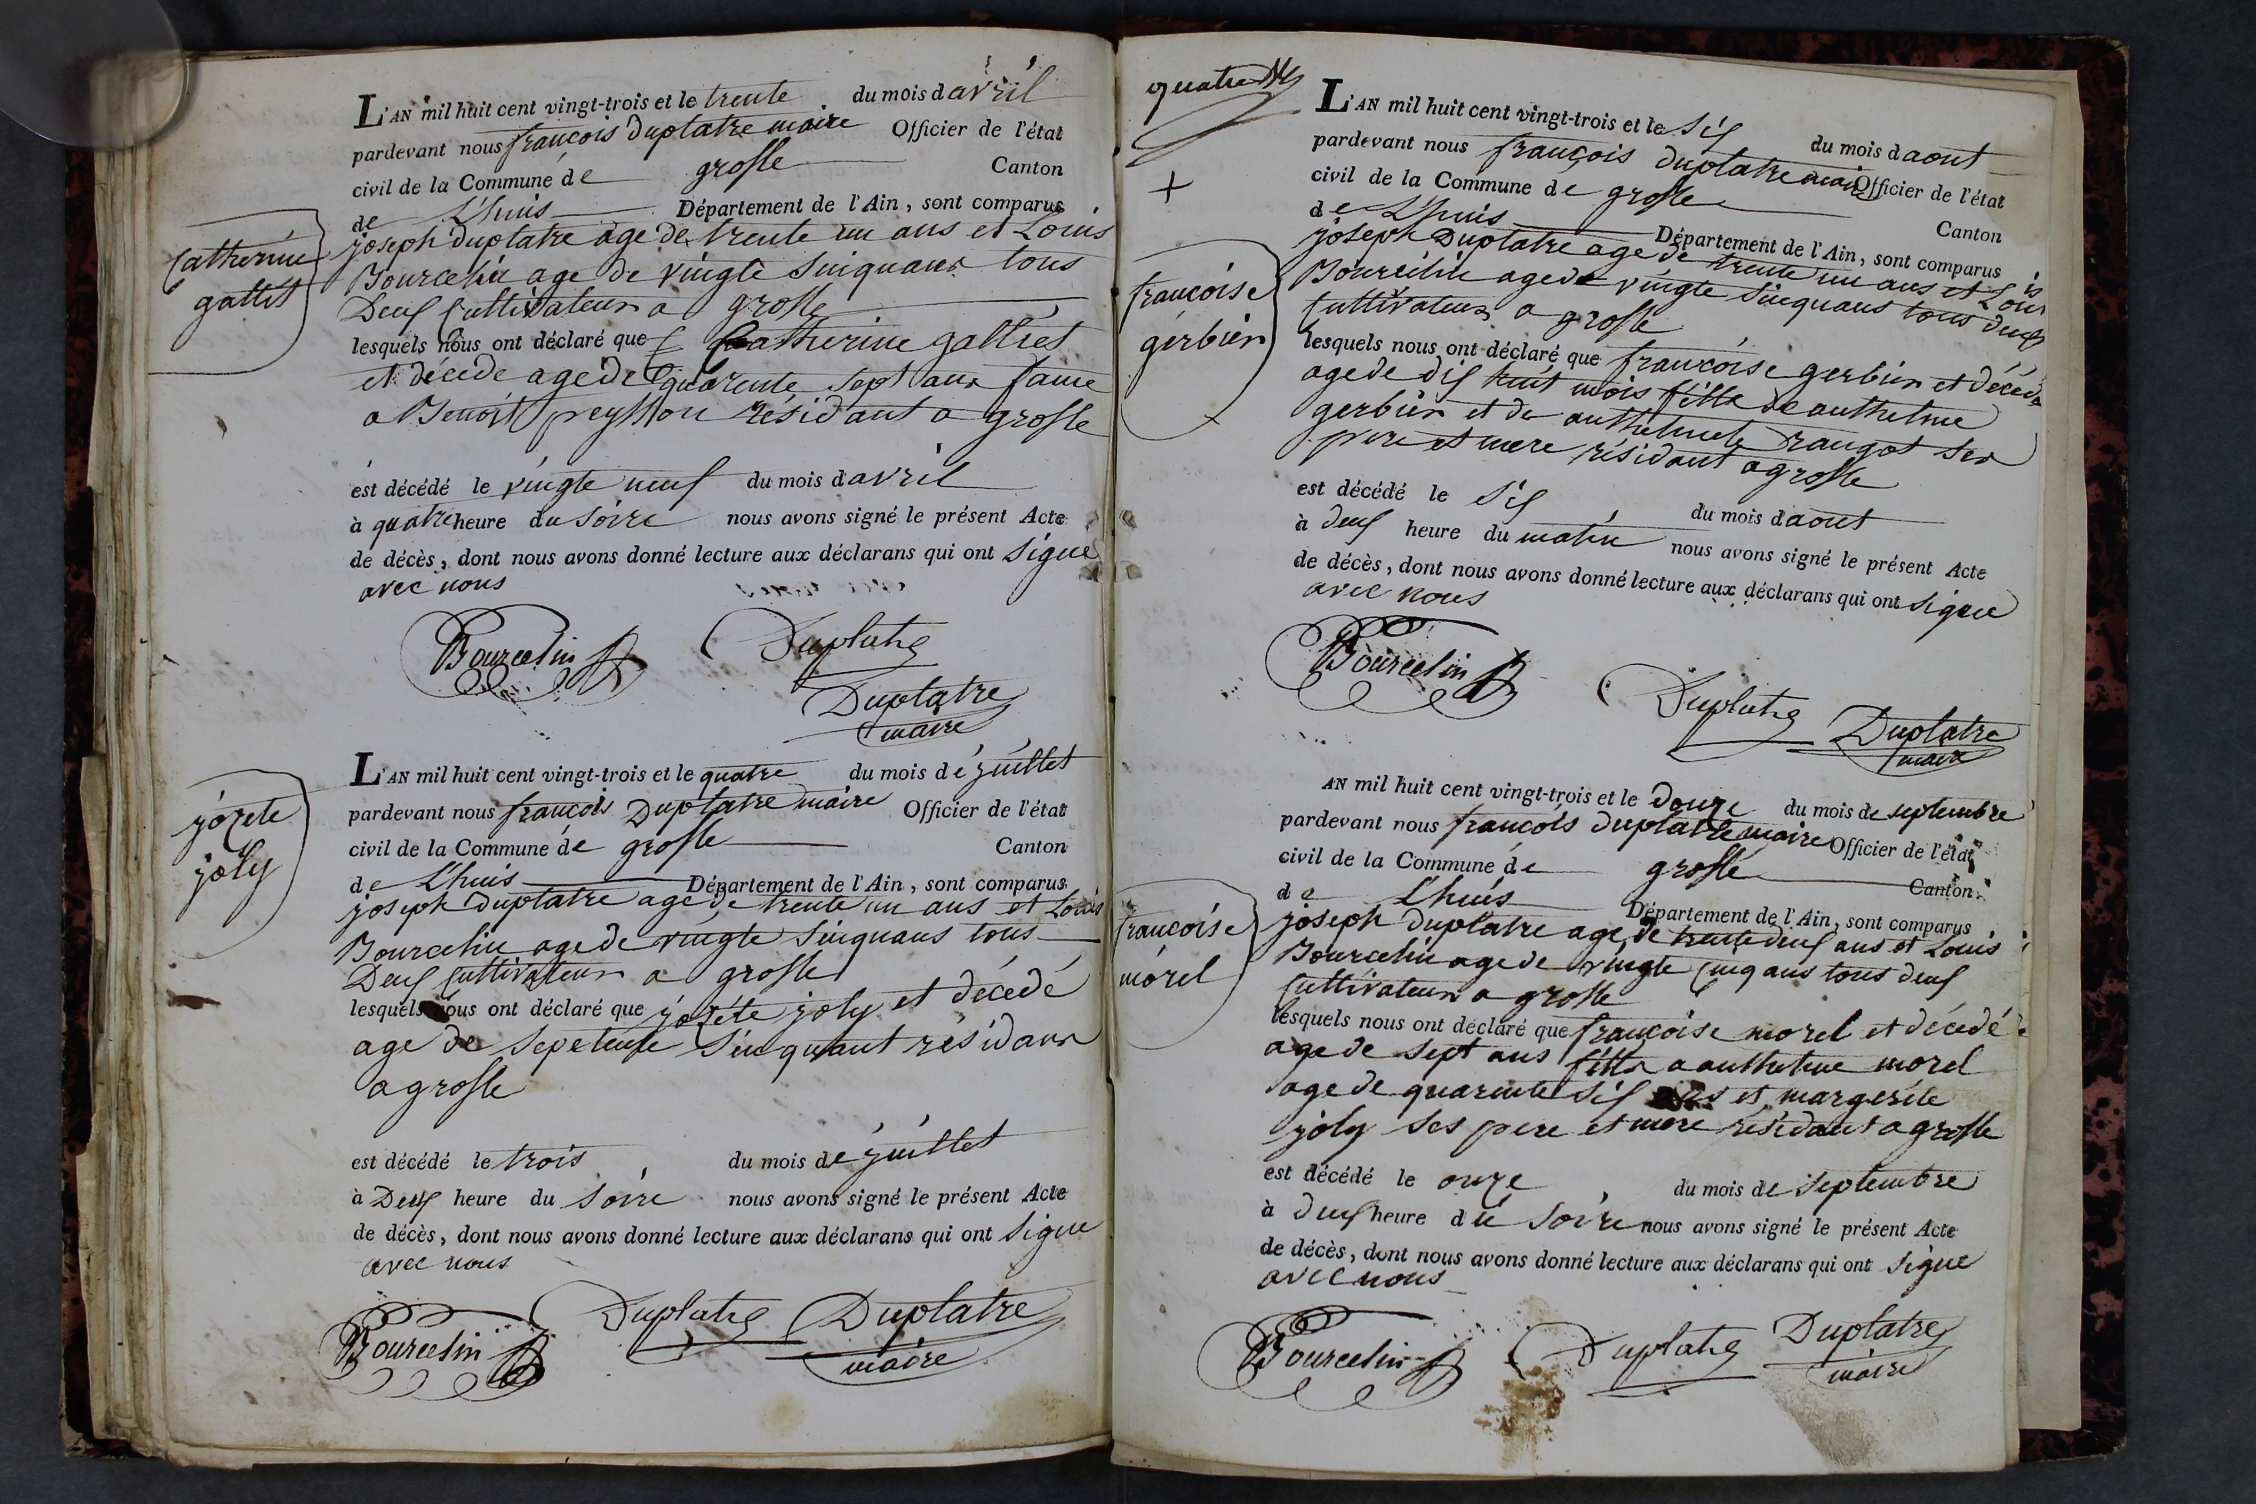 L'AN mil huit cent vingt-trois et le trente du mois d avril
pardevant nous françois Duplatre maire Officier de l'état
civil de la Commune de grosle Canton
de L'huis Département de l'Ain, sont comparus
joseph duplatre age de trente un ans et Louis
Bourcelin age de vingte sinquans tous
Deus Cultivateur a grosle
lesquels nous ont déclaré que Catherine galliet
et décédé age de quarente sept ans fame
a Benoit peysson résidant a grosle
est décédé le vingte neuf du mois d avril
à quatre heure du soire nous avons signé le présent Acte
de décès, dont nous avons donné lecture aux déclarans qui ont signe
avec nous
Bourcelin Duplatre
Duplatre
maire
Catherine
galliet
L'AN mil huit cent vingt-trois et le quatre du mois de juillet
pardevant nous françois Duplatre maire Officier de l'état
civil de la Commune de grosle Canton
de L'huis Département de l'Ain, sont comparus
joseph duplatre age de trente un ans et Louis
Bourcelin age de vingte sinquans tous
Deus Cultivateur a grosle
lesquels nous ont déclaré que jozéte joly et décédé
age de sinquant résidans
a grosle
est décédé le trois du mois de juillet
à Deus heure du soire nous avons signé le présent Acte
de décès, dont nous avons donné lecture aux déclarans qui ont signe
avec nous
Bourcelin Duplatre Duplatre
maire
jozete
joly
quatre
L'AN mil huit cent vingt-trois et le sis du mois d aout
pardevant nous françois duplatre maire Officier de l'état
civil de la Commune de grosle Canton
de L'huis Département de l'Ain, sont comparus
joseph Duplatre age de trente un ans et Louis
Bourcelin age de vingte sinquans tous deus
Cultivateur a grosle
lesquels nous ont déclaré que françoise gerbier et décédé
age de dis huit mois fille de anthelme
gerbier et de anthelmete rangot ses
pere et mere résidant a grosle
est décédé le sis du mois d aout
à deus heure du matin nous avons signé le présent Acte
de décès, dont nous avons donné lecture aux déclarans qui ont signe
avec nous
Bourcelin Duplatre Duplatre
maire
françoise
gerbier
AN mil huit cent vingt-trois et le douze du mois de septembre
pardevant nous françois duplatre maire Officier de l'état
civil de la Commune de grosle Canton
de L'huis Département de l'Ain, sont comparus
joseph duplatre age de trente deus ans et Louis
Bourcelin age de vingte cinq ans tous deus
Cultivateur a grosle
lesquels nous ont déclaré que françoise morel et décédé
age de sept ans fille a anthelme morel
age de quarente sis ans et margerite
joly ses pere et mere résidant a grosle
est décédé le onze du mois de septembre
à deus heure du soire nous avons signé le présent Acte
de décès, dont nous avons donné lecture aux déclarans qui ont signe
avec nous
Bourcelin Duplatre Duplatre
maire
françoise
morel